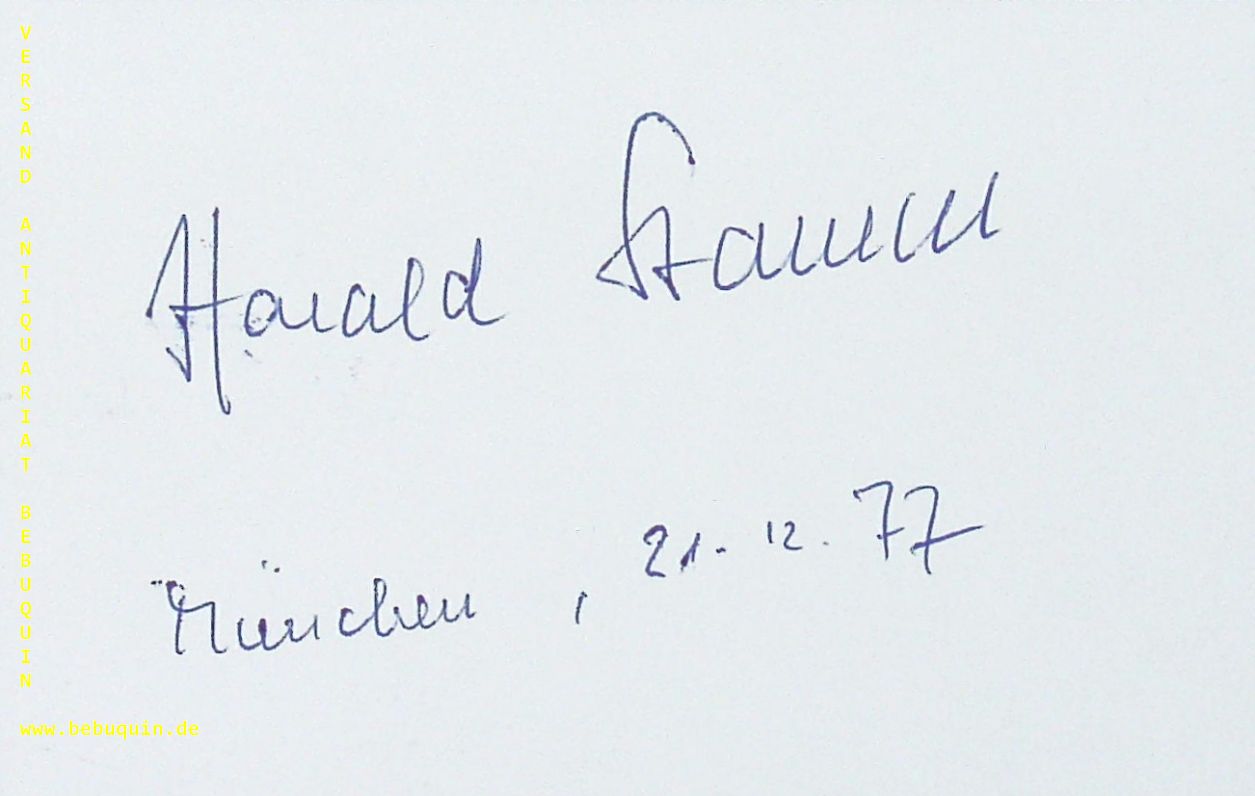 VERSAND ANTIQUARIAT BEBUQUIN
Harald Stamm
München, 21. 12. 77
www.bebuquin.de